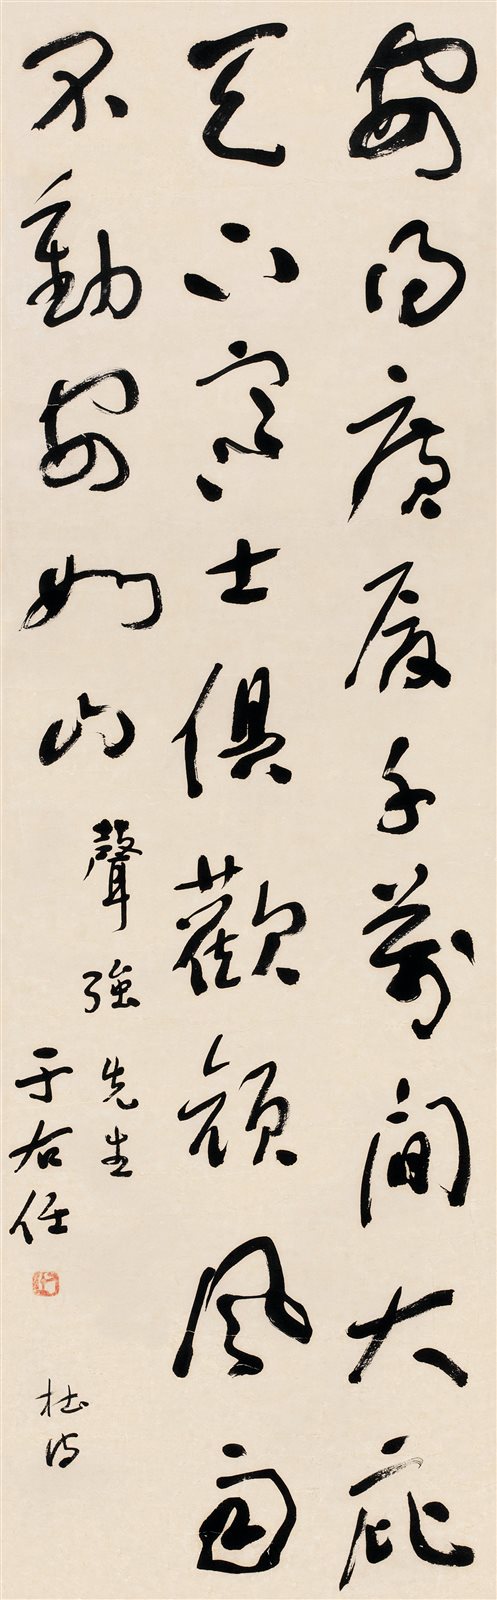 安得廣廈千萬間大庇
天下寒士俱歡顏風雨
不動安如山
聲強先生
于右任
杜詩